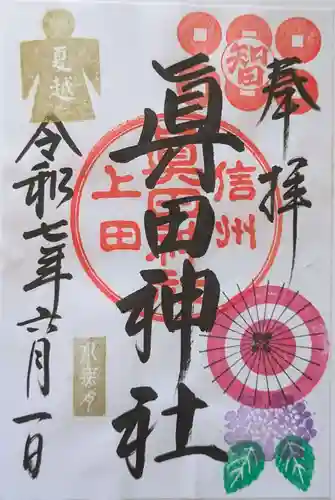 奉拝
智
眞田神社
信州
眞田神社
上田
夏越
令和七年六月一日
水無月